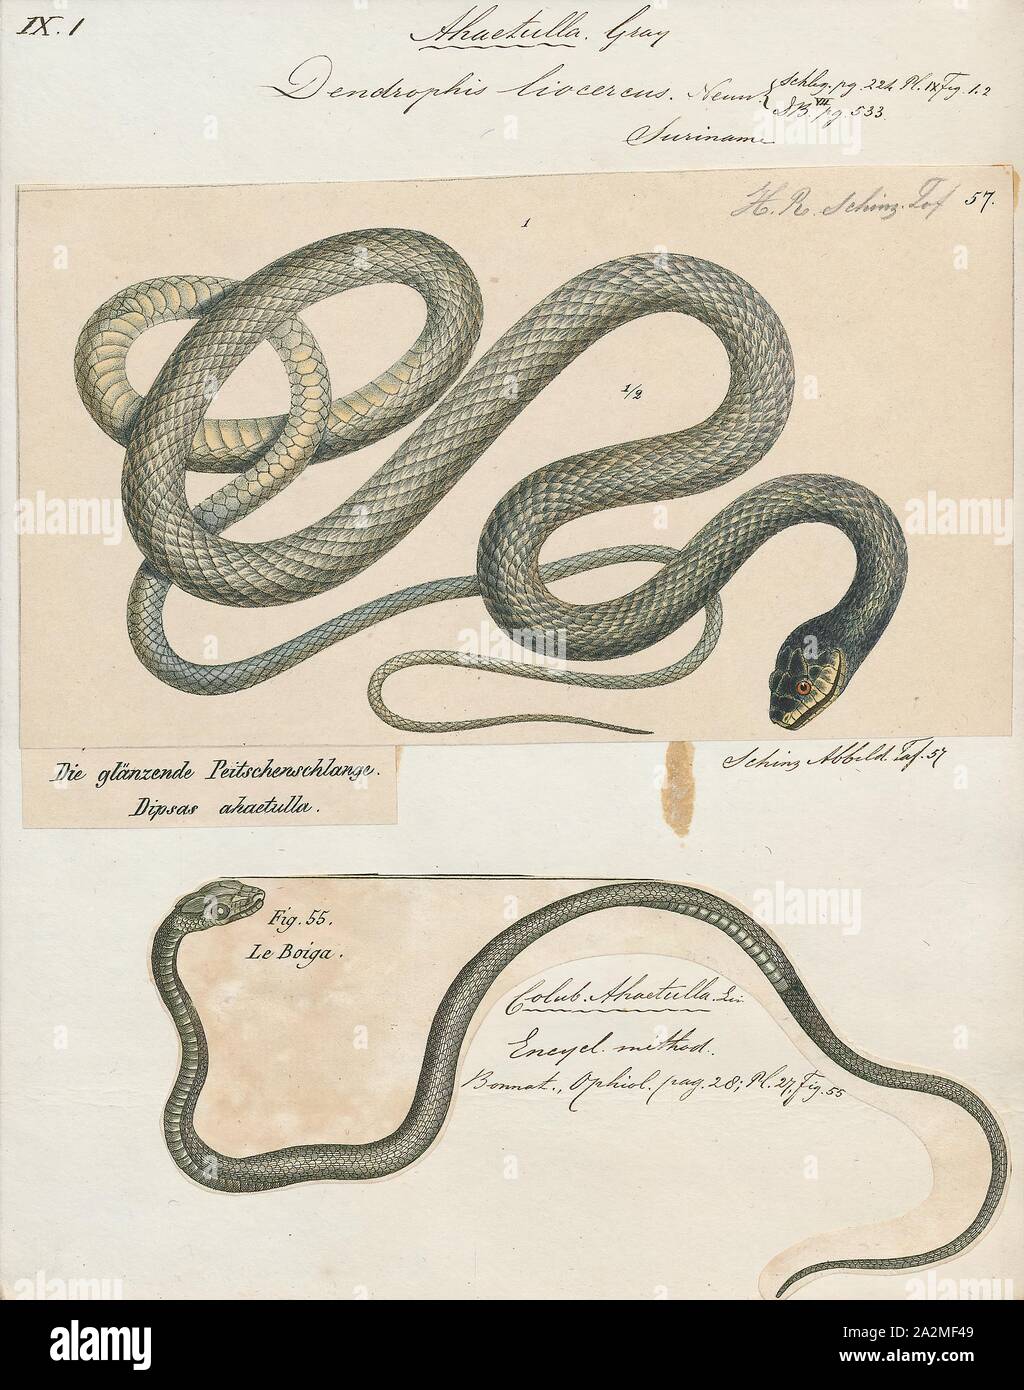 IX. 1
Ahaetulla. Gray
Dendrophis liocercus. Neuw. { Schleg. pg. 224 Pl. IX Fig. 1.2
DB. VII pg. 533.
Suriname
H. R. Schinz. Taf 57.
1
1/2
Die glänzende Peitschenschlange.
Dipsas ahaetulla.
Schinz Abbild. Taf. 57
Fig. 55.
Le Boiga.
Colub. Ahaetulla. Lin
Encycl. method.
Bonnat., Ophiol. pag. 28; Pl. 27, Fig. 55
alamy
Image ID: 2A2MF49
www.alamy.com